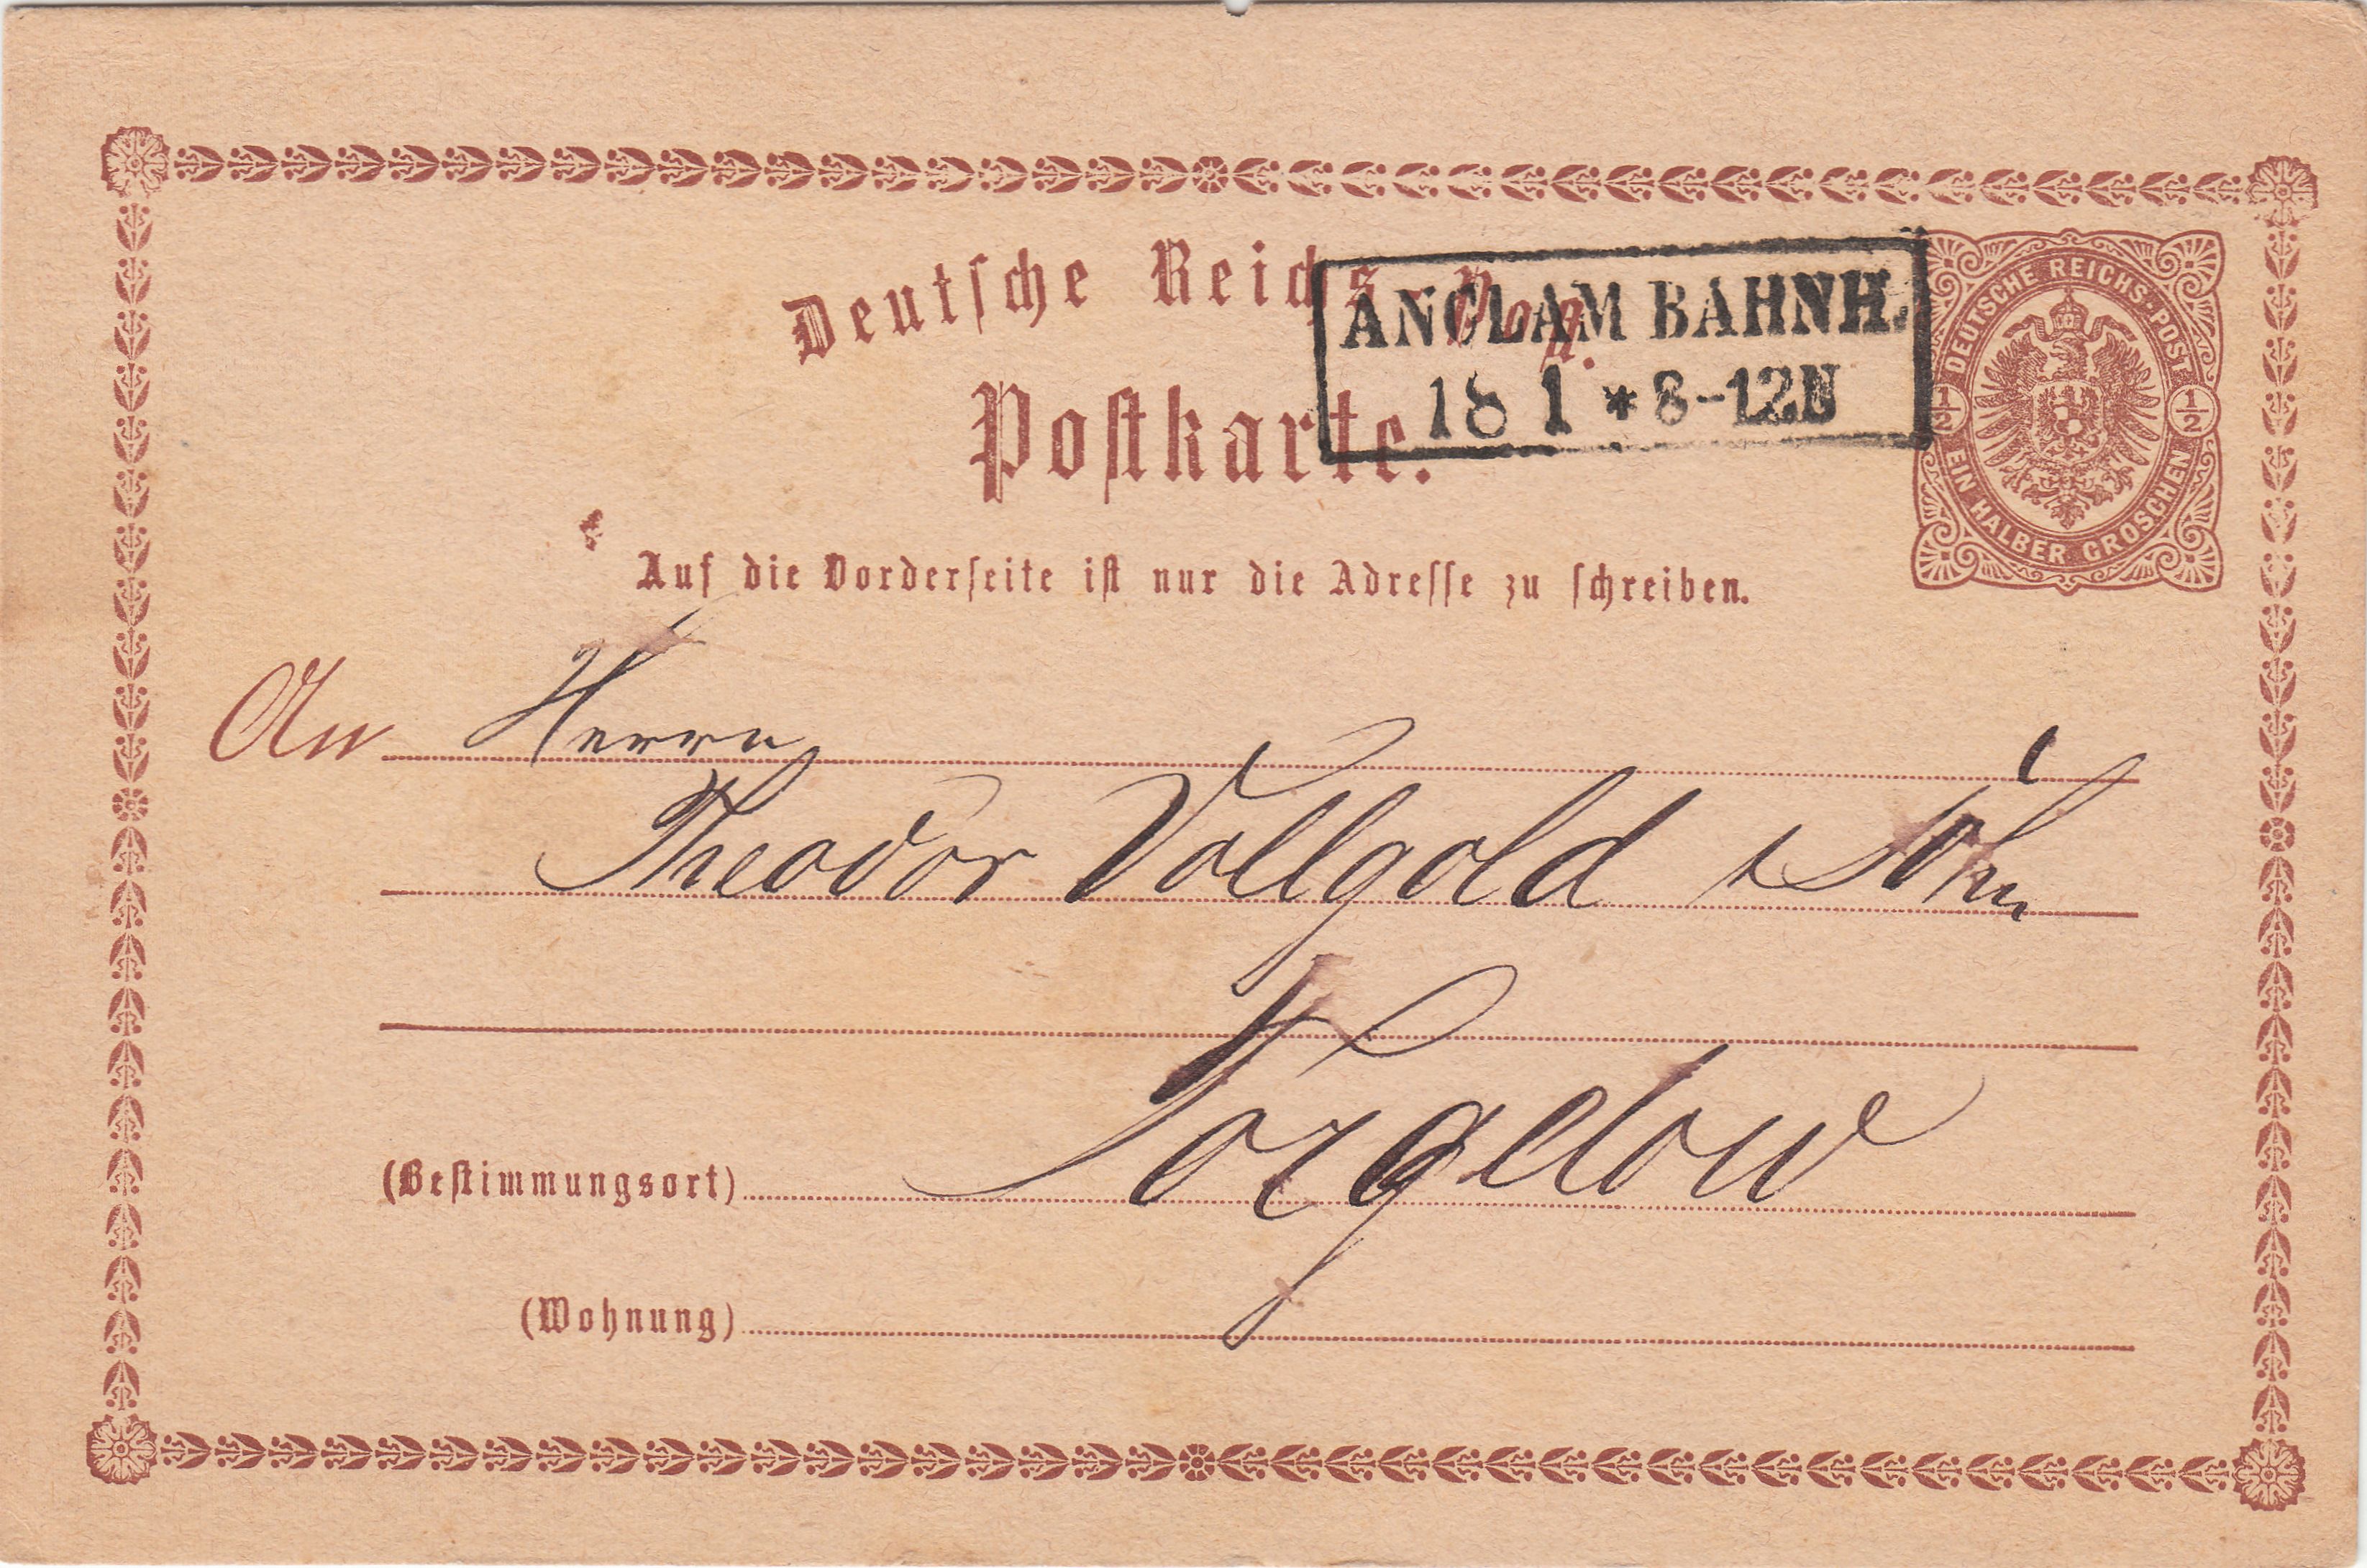 Deutſche Reichs-Poſt.
ANCLAM BAHNH.
18 1 * 8-12N
DEUTSCHE REICHS-POST
1/2 1/2
EIN HALBER GROSCHEN
Poſtkarte.
Auf die Vorderſeite iſt nur die Adreſſe zu ſchreiben.
An Herrn
Theodor Vollgold & Sohn
Torgelow
(Beſtimmungsort)
(Wohnung)